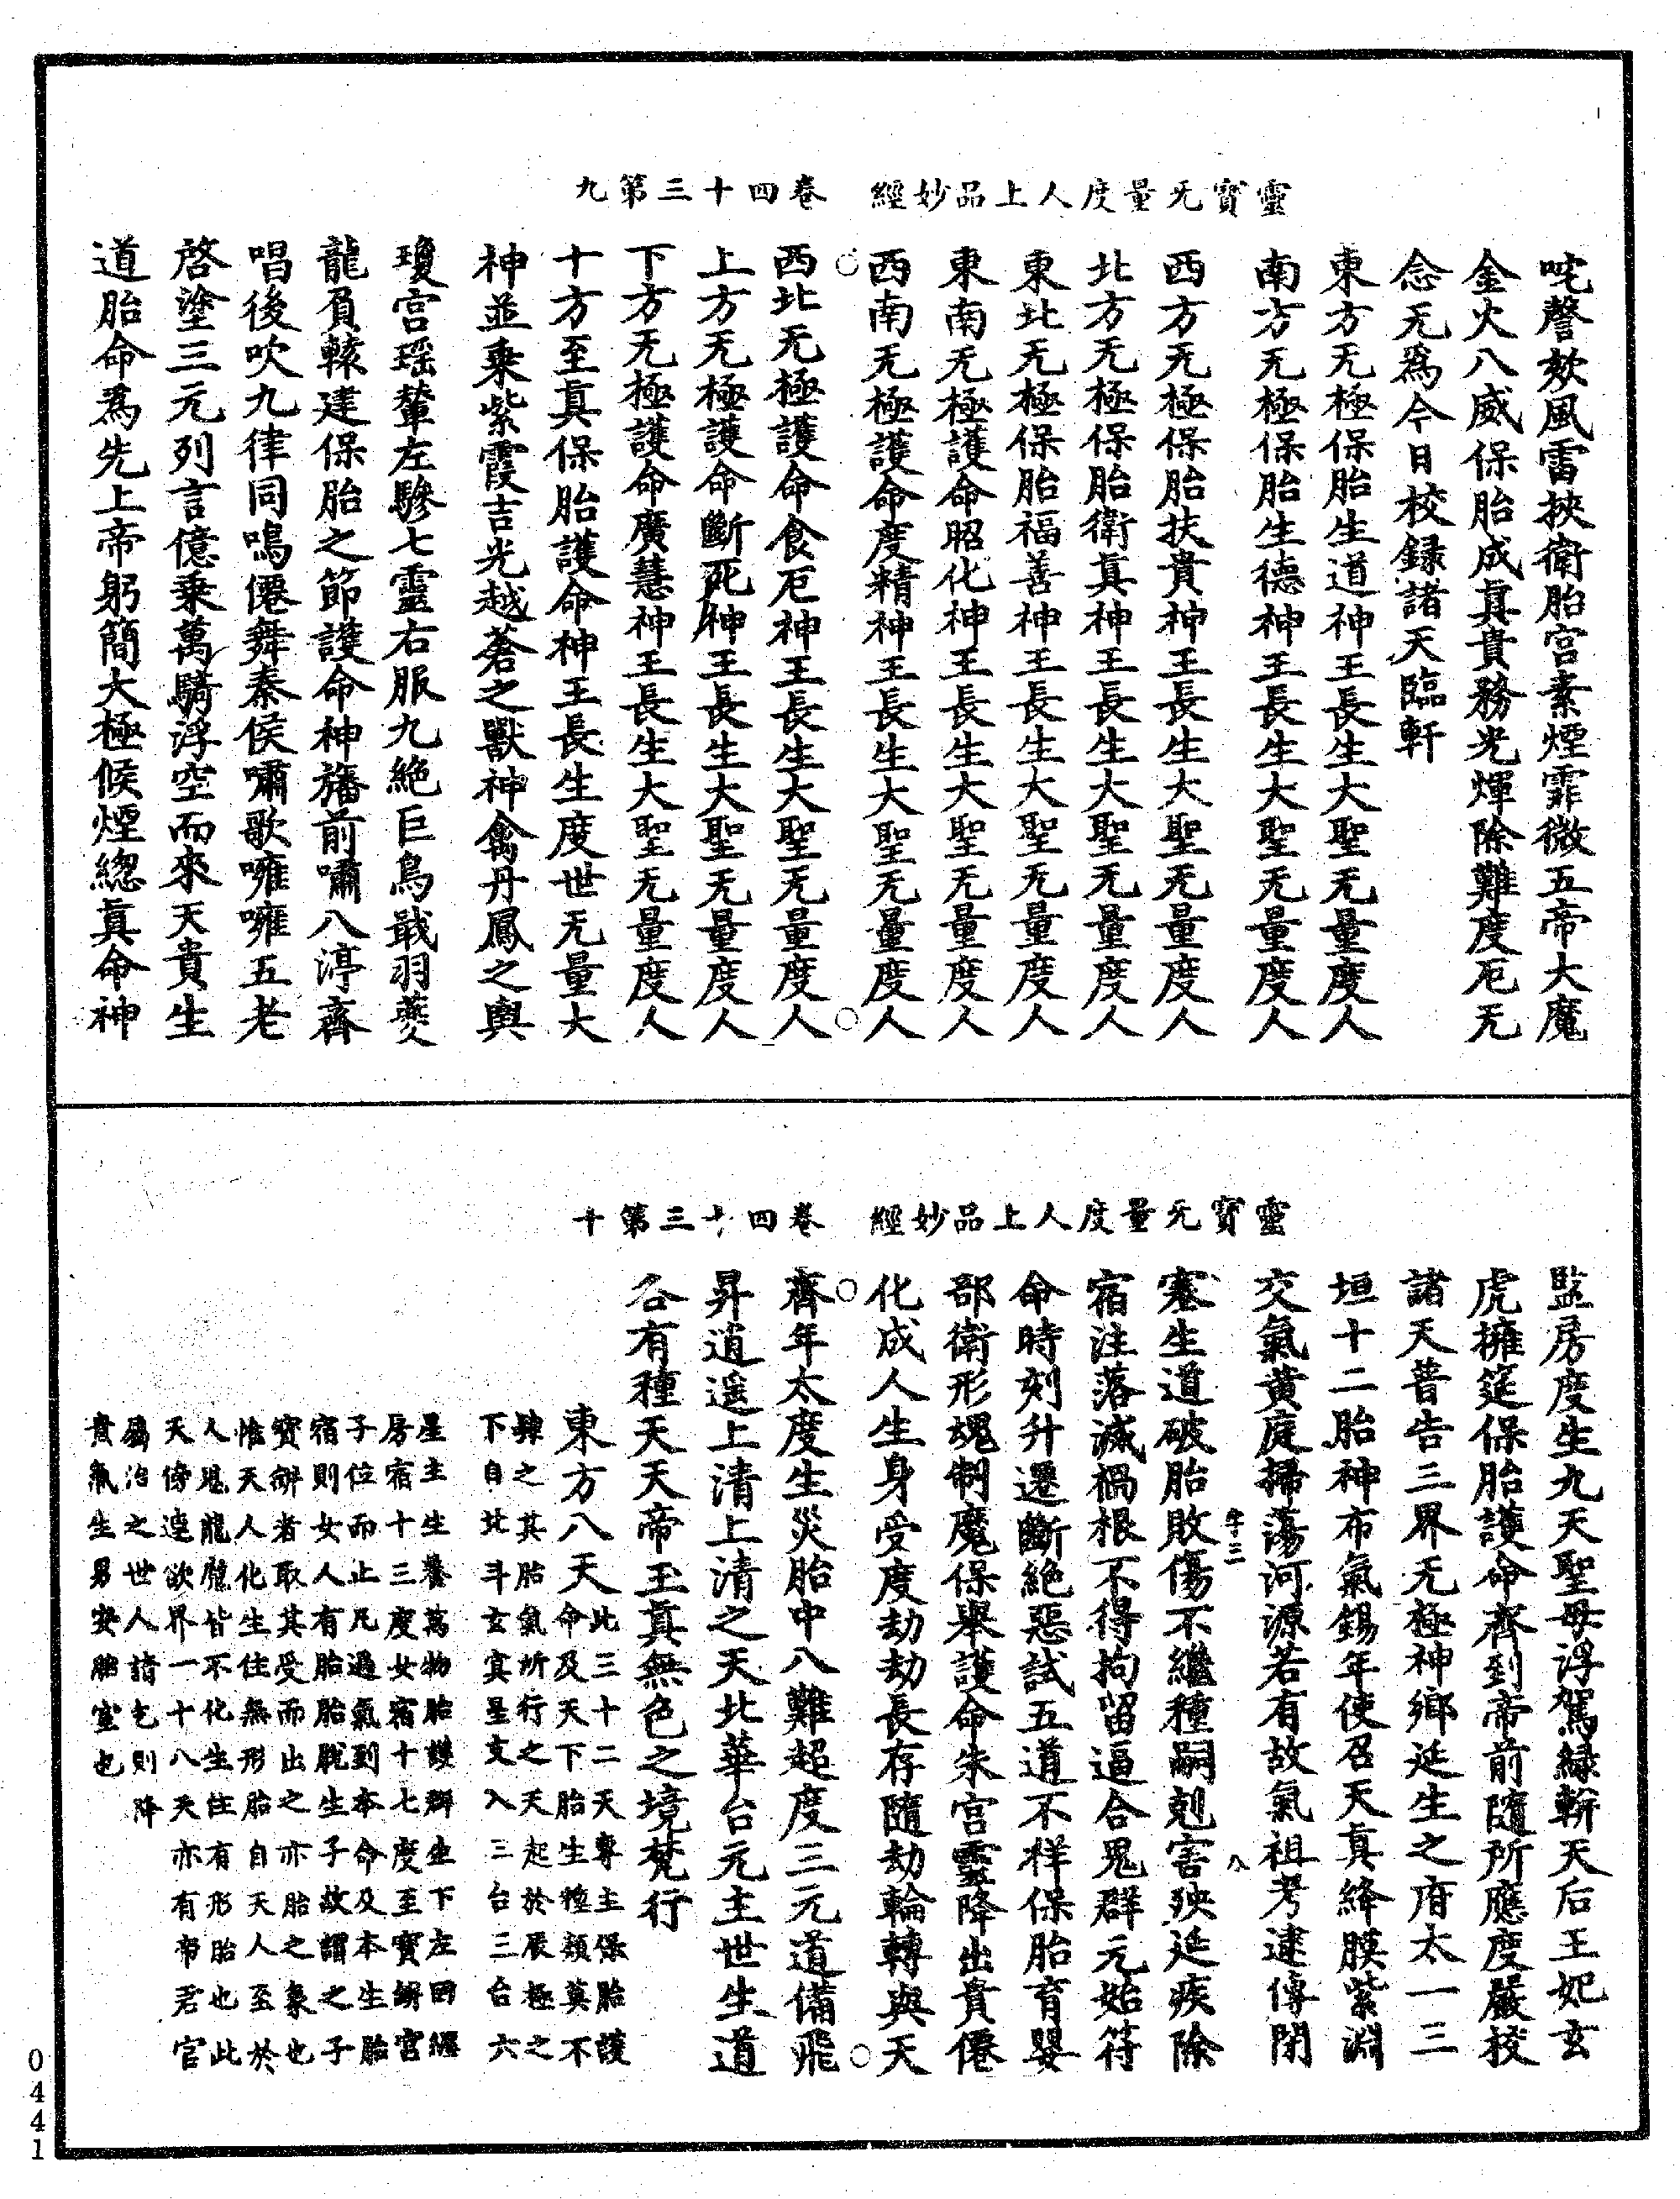 靈寶无量度人上品妙經　卷四十三第九
咤謦欬風雷挾衛胎宫素煙霏微五帝大魔
金火八威保胎成真貴務光煇除難度厄无
念无爲今日校録諸天臨軒
東方无極保胎生道神王長生大聖无量度人
南方无極保胎生德神王長生大聖无量度人
西方无極保胎扶貴神王長生大聖无量度人
北方无極保胎衛真神王長生大聖无量度人
東北无極保胎福善神王長生大聖无量度人
東南无極護命昭化神王長生大聖无量度人
西南无極護命度精神王長生大聖无量度人
西北无極護命食厄神王長生大聖无量度人
上方无極護命斷死神王長生大聖无量度人
下方无極護命廣慧神王長生大聖无量度人
十方至真保胎護命神王長生度世无量大
神並乘紫霞吉光越蒼之獸神禽丹鳳之輿
瓊宫瑶輦左驂七靈右服九絶巨鳥戢羽夔
龍負轅建保胎之節護命神旛前嘯八渟齊
唱後吹九律同鳴僊舞秦侯嘯歌嗈嗈五老
啓塗三元列言億乘萬騎浮空而來天貴生
道胎命爲先上帝躬簡大極候煙緫真命神
靈寶无量度人上品妙經　卷四十三第十
監房度生九天聖母浮駕緑軿天后王妃玄
虎擁筵保胎護命齊到帝前隨所應度嚴校
諸天普告三界无極神鄉延生之府太一三
垣十二胎神布氣錫年使召天真絳膜紫淵
交氣黄庭掃蕩河源若有故氣祖考逮傳閉
塞生道破胎敗傷不繼種嗣剋害殃延疾除
宿注落滅禍根不得拘留逼合鬼群元始符
命時刻升遷斷絶惡試五道不祥保胎育嬰
部衛形魂制魔保舉護命朱宫靈降出貴僊
化成人生身受度劫劫長存隨劫輪轉與天
齊年太度生災胎中八難超度三元道備飛
昇逍遥上清上清之天北華台元主世生道
各有種天天帝王真無色之境梵行
東方八天此三十二天專主保胎護
命及天下胎生種類莫不
肄之其胎氣所行之天起於辰極之
下自北斗玄冥星文入三台三台六
星主生養萬物胎護群生下左回纒
房宿十三度女宿十七度至寶缾宫
子位而止凡過氣到本命及本生胎
宿則女人有胎胎脱生子故謂之子
寶缾者取其受而出之亦胎之象也
惟天人化生住無形胎自天人至於
人鬼龍魔皆不化生住有形胎也此
天傍連欲界一十八天亦有帝君官
屬治之世人請乞則降
真氣生男安胎室也
字十三
八
0441